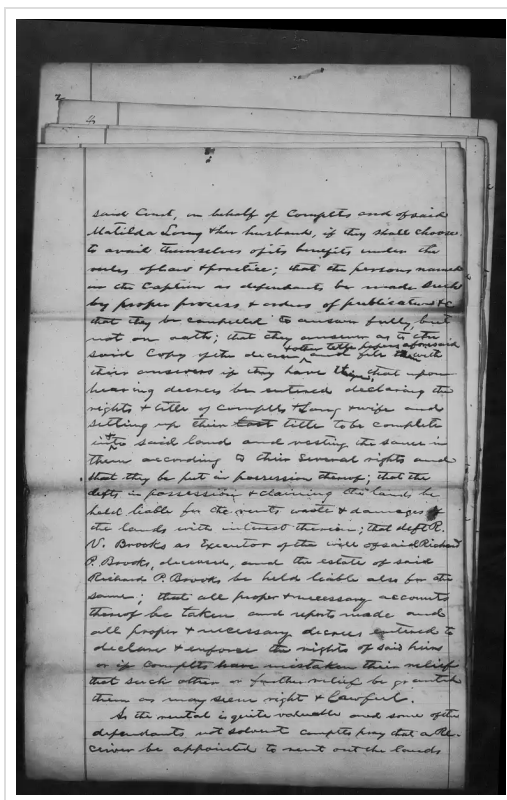 said Court, on behalf of Complts and of said
Matilda Long & her husband, if they shall choose
to avail themselves of its benefits under the
rules of law & practice; that the persons named
in the Caption as defendants be made such
by proper process & orders of publication &c
that they be compelled to answer fully, but
not on oath; that they answer as to the
& other title papers aforesaid
said Copy of the decree and file the with
their answers if they have; that upon
hearing decrees be entered declaring the
rights & title of Complts & Long & wife and
setting up their lost title to be complete
into said land and vesting the same in
them according to their several rights and
that they be put in possession thereof; that the
defts in possession & claiming the lands be
held liable for the rents waste & damages of
the lands with interest therein; that deft R.
V. Brooks as Executor of the will of said Richard
P. Brooks, deceased, and the estate of said
Richard P. Brooks be held liable also for the
same; that all proper & necessary accounts
thereof be taken and reports made and
all proper & necessary decrees entered to
declare & enforce the rights of said heirs
or if Complts have mistaken their relief
that such other or further relief be granted
them as may seem right & lawful.
As the rental is quite valuable and some of the
defendants not solvent complts pray that a Re-
ceiver be appointed to rent out the lands